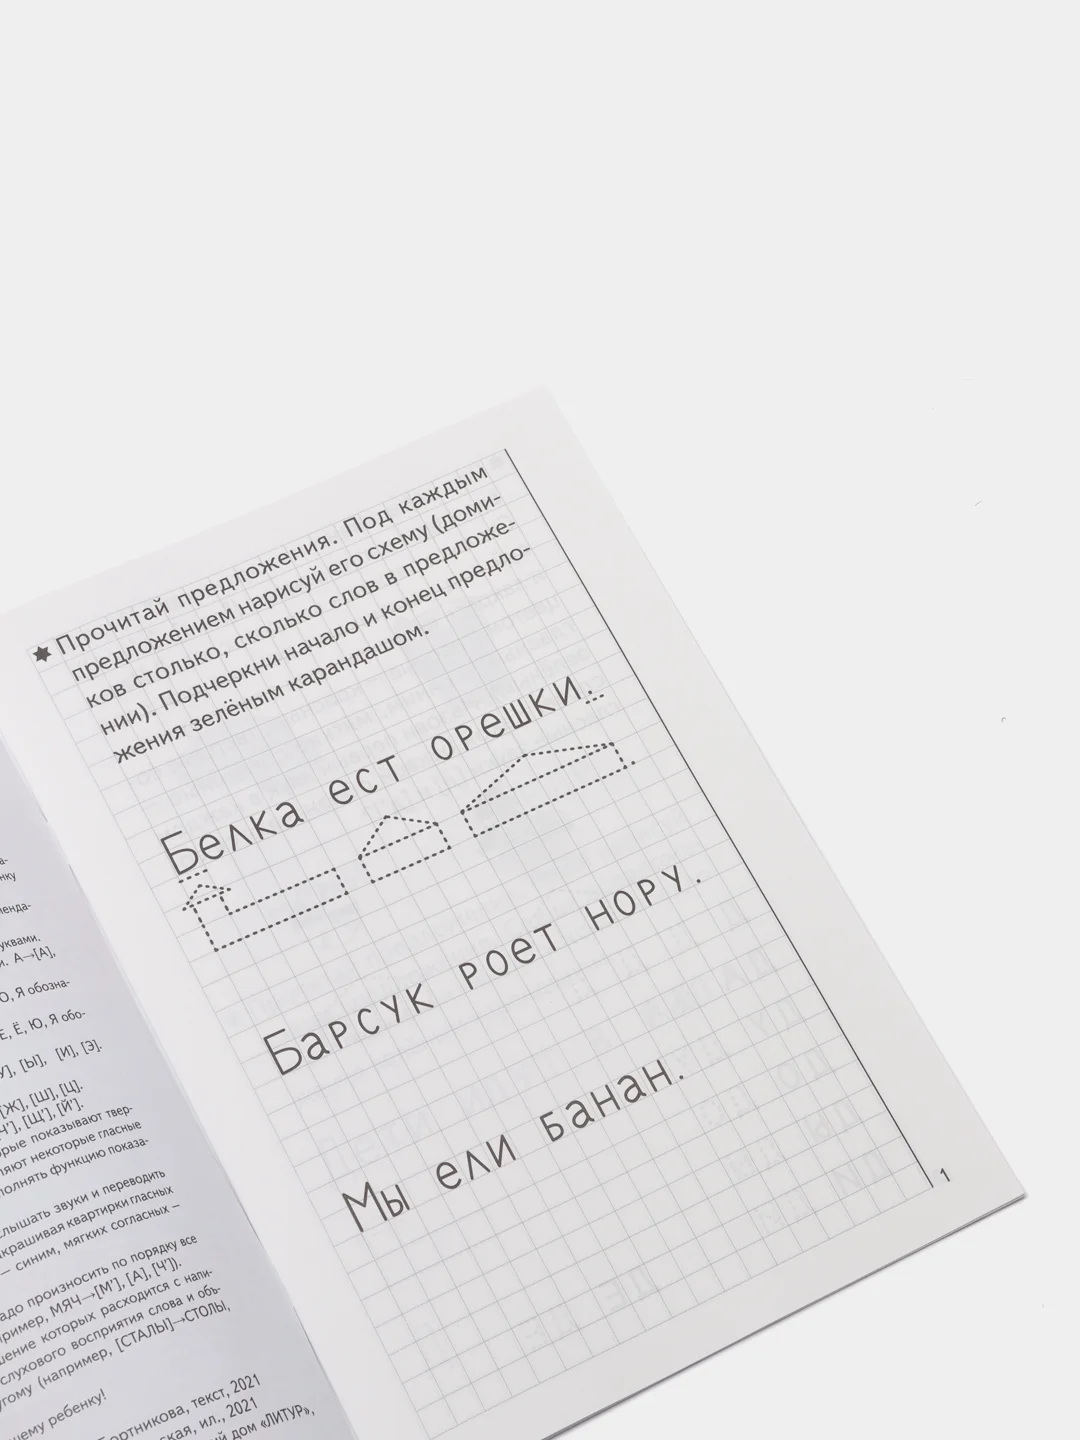 Прочитай предложения. Под каждым
предложением нарисуй его схему (доми-
ков столько, сколько слов в предложе-
нии). Подчеркни начало и конец предло-
жения зелёным карандашом.
Белка ест орешки.
Барсук роет нору.
Мы ели банан.
1
уквами.
А→[А],
О, Я обозна-
Е, Ё, Ю, Я обо-
[Ы], [И], [Э].
[Ж], [Ш], [Ц].
[Щ'], [Й'].
показывают твер-
некоторые гласные
функцию показа-
звуки и переводить
квартирки гласных
— синим, мягких согласных —
произносить по порядку все
МЯЧ→[М'], [А], [Ч']).
которых расходится с напи-
слухового восприятия слова и объ-
(например, [СТАЛЫ]→СТОЛЫ,
ребенку!
Бортникова, текст, 2021
ил., 2021
дом «ЛИТУР»,